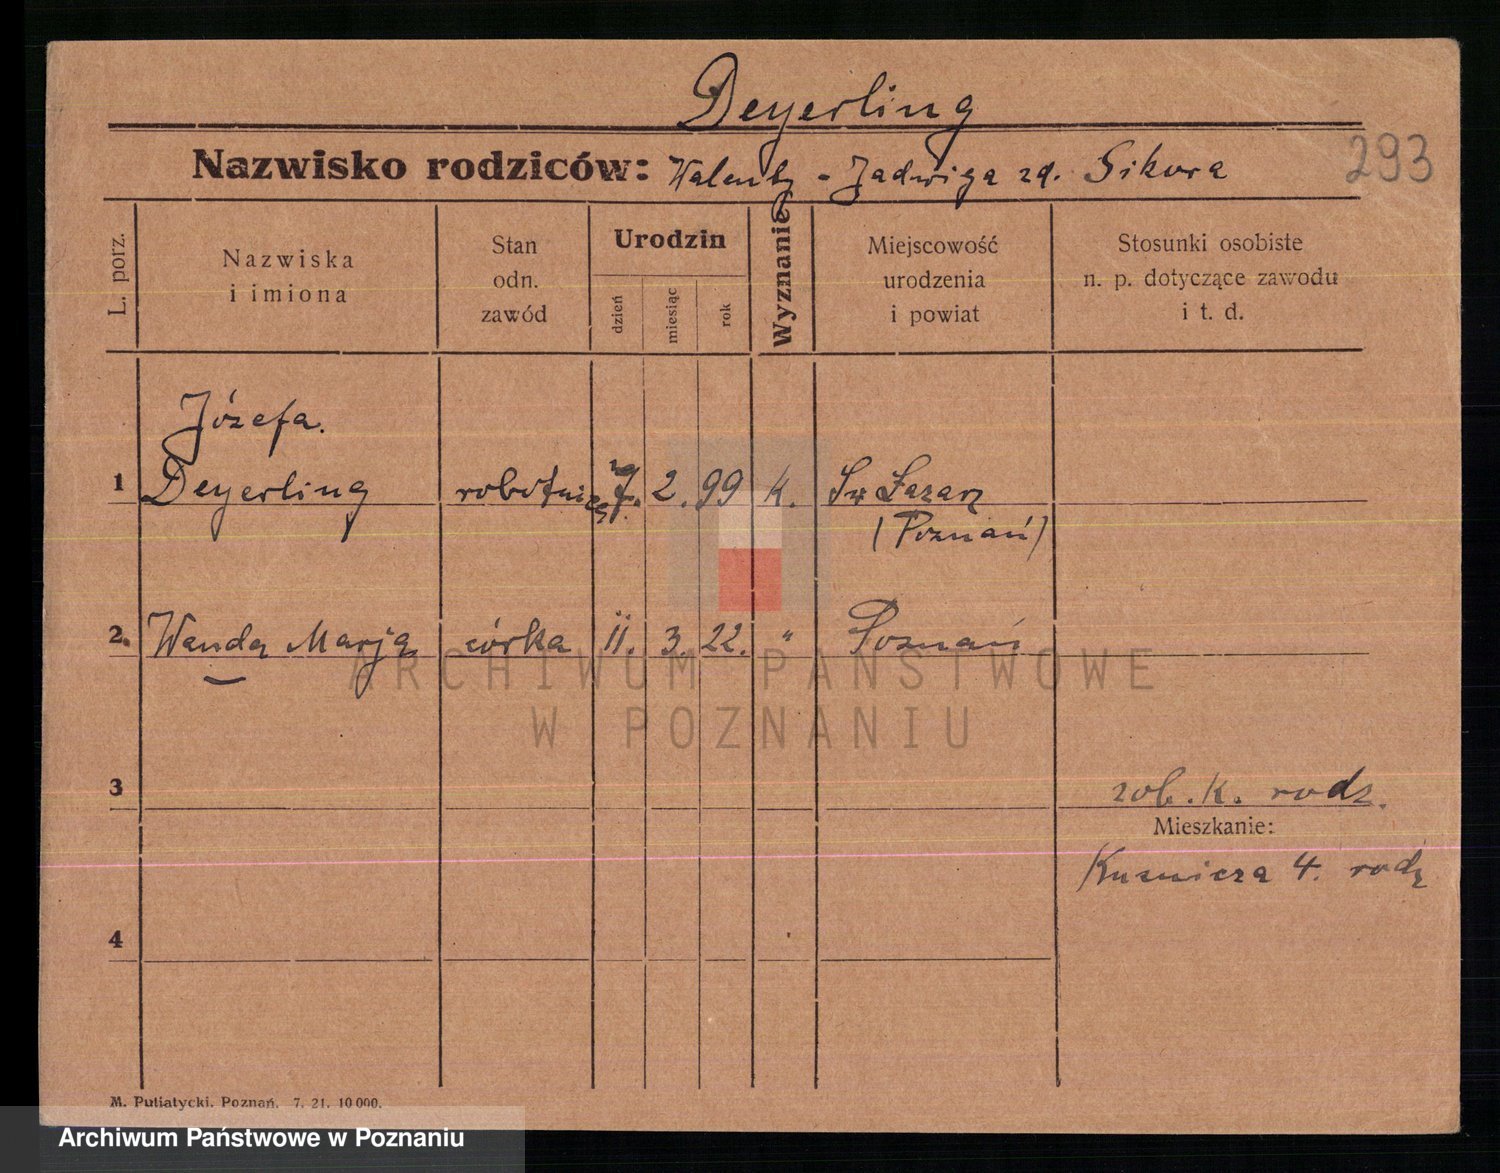 Deyerling
Nazwisko rodziców: Walenty - Jadwiga zd. Sikora
293
L. porz.
Nazwiska
i imiona
Stan
odn.
zawód
Urodzin
dzień
miesiąc
rok
Wyznanie
Miejscowość
urodzenia
i powiat
Stosunki osobiste
n. p. dotyczące zawodu
i t. d.
Józefa.
1 Deyerling robotnica 7. 2. 99 k. Sw Łazarz
(Poznań)
2. Wanda Marja córka 11. 3. 22. " Poznań
3
zob. k. rodz.
Mieszkanie:
4. rodz
4
M. Putiatycki. Poznań. 7. 21. 10 000.
ARCHIWUM PAŃSTWOWE
W POZNANIU
Archiwum Państwowe w Poznaniu